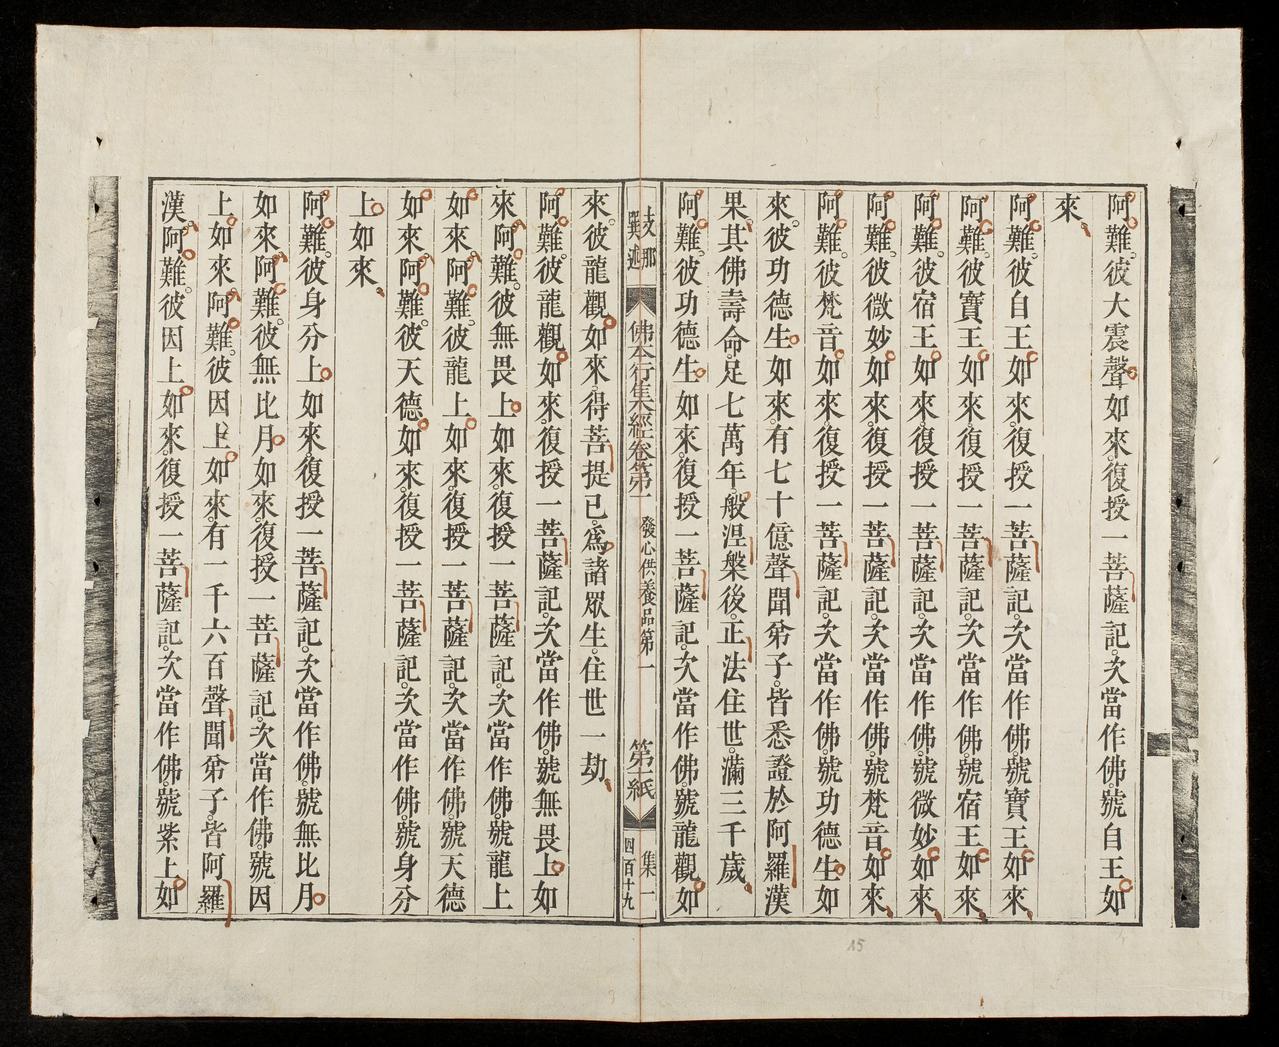 阿難。彼大震聲如來。復授一菩薩記。次當作佛。號自王如
來。
阿難。彼自王如來。復授一菩薩記。次當作佛。號寶王如來。
阿難。彼寶王如來。復授一菩薩記。次當作佛。號宿王如來。
阿難。彼宿王如來。復授一菩薩記。次當作佛。號微妙如來。
阿難。彼微妙如來。復授一菩薩記。次當作佛。號梵音如來。
阿難。彼梵音如來。復授一菩薩記。次當作佛。號功德生如
來。彼功德生如來。有七十億聲聞弟子。皆悉證於阿羅漢
果。其佛壽命。足七萬年。般涅槃後。正法住世。滿三千歲。
阿難。彼功德生如來。復授一菩薩記。次當作佛。號龍觀如
支那
撰述
佛本行集經卷第一
發心供養品第一
第十一紙
集一
四百十九
來。彼龍觀如來。得菩提已。爲諸眾生。住世一劫。
阿難。彼龍觀如來。復授一菩薩記。次當作佛。號無畏上如
來。阿難。彼無畏上如來。復授一菩薩記。次當作佛。號龍上
如來。阿難。彼龍上如來。復授一菩薩記。次當作佛。號天德
如來。阿難。彼天德如來。復授一菩薩記。次當作佛。號身分
上如來。
阿難。彼身分上如來。復授一菩薩記。次當作佛。號無比月
如來。阿難。彼無比月如來。復授一菩薩記。次當作佛。號因
上如來。阿難。彼因上如來。有一千六百聲聞弟子。皆阿羅
漢。阿難。彼因上如來。復授一菩薩記。次當作佛。號紫上如
15